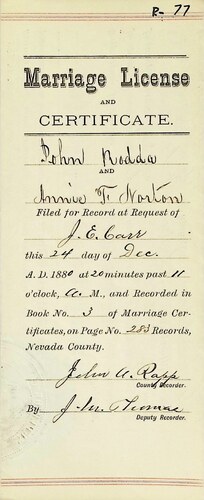 R-77
Marriage License
AND
CERTIFICATE.
John Rodda
AND
Annie F. Norton
Filed for Record at Request of
J. E. Carr
this 24 day of Dec.
A. D. 1880 at 20 minutes past 11
o'clock, A. M., and Recorded in
Book No. 3 of Marriage Cer-
tificates, on Page No. 283 Records,
Nevada County.
John A. Rapp
County Recorder.
By J. M. Thomas
Deputy Recorder.